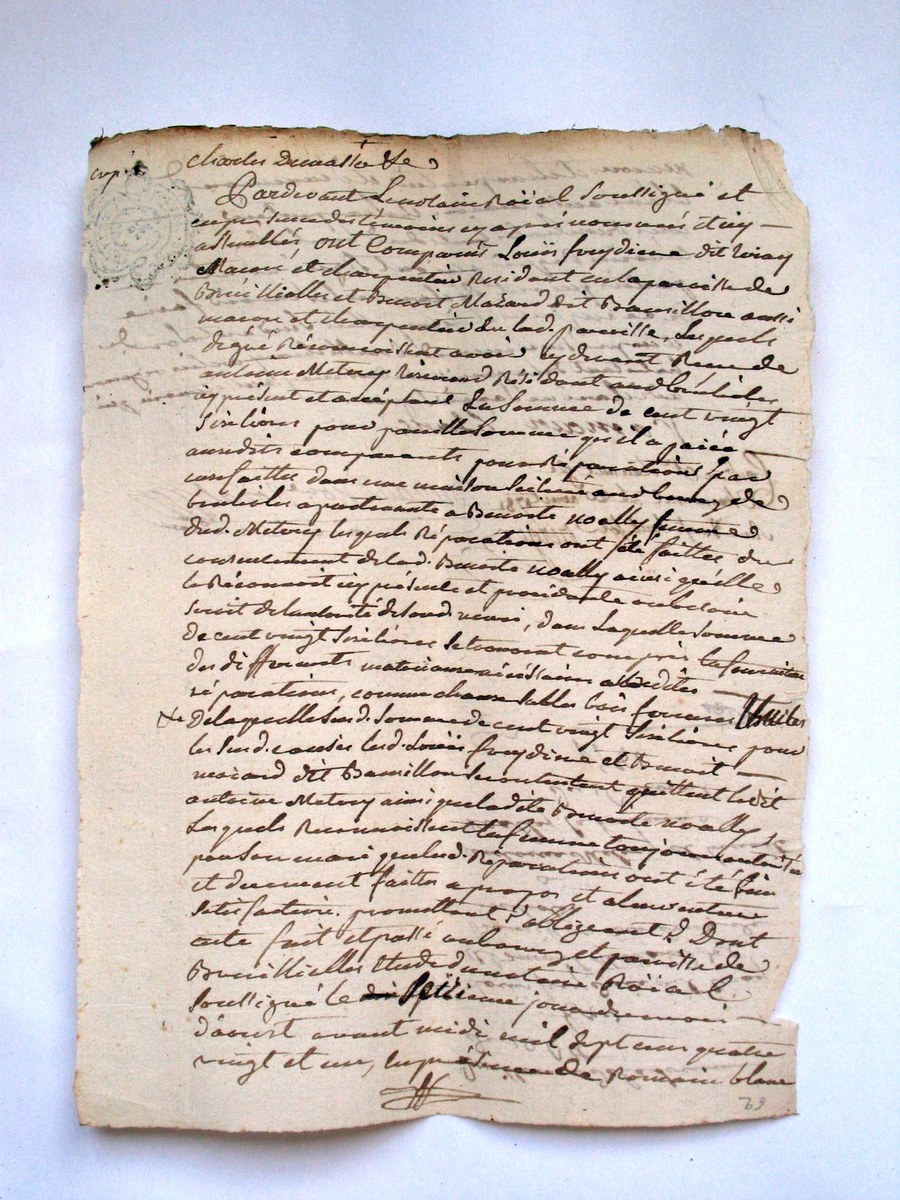 Charles Dumas
Pardevant Le notaire Roïal Soussigné et
en presence des témoins cy apres nommés et icy
assemblés, ont Comparus Louïs freydiere dit
Macon et charpentier Residant en la paroisse de
et Benoit Mazard dit Bamillon aussi
macon et charpentier de lad. paroisse, Lesquels
de gré Reconnoissent avoir cy devant Receu de
antoine Metery Résidant aud
icy présent et acceptant La Somme de cent vingt
Six livres pour pareille Somme qu'il a païée
ausdits comparants pour Réparations par
eux faittes dans une maison Scituée aud bourg de
apartenante a Benoite noally femme
dud. Metery lesquels Réparations ont été faittes du
consentement de lad. Benoite noally ainsi qu'elle
le Reconnoit icy présente et procédante au besoin
de l'autorité de Sond. mari, dans Laquelle Somme
de cent vingt Six livres Se trouvant compris la fourniture
des differents materiaux nécéssaires ausdittes
réparations, comme chaux Sables bois ferrures Thuiles
De laquelle Sus d. Somme de cent vingt Six livres pour
les Sus d. causes lesd. Louïs freydiere et Benoit
mazard dit Bamillon Se contentent quittent ledit
antoine Metery ainsi que ladite Benoite noally,
Lesquels Reconnoissent la femme toujours autorisée
par Son mari que lesd. Réparations ont été bien
et duement faittes a propos et a leur entiere
Satisfaction. promettant obligeant Dont
acte fait et passé au bourg et paroisse de
Etude du notaire Roïal
Soussigné le Septieme jour du mois
d'aoust avant midi mil Sept cens quatre
vingt et un, en présence de Romain blanc
69